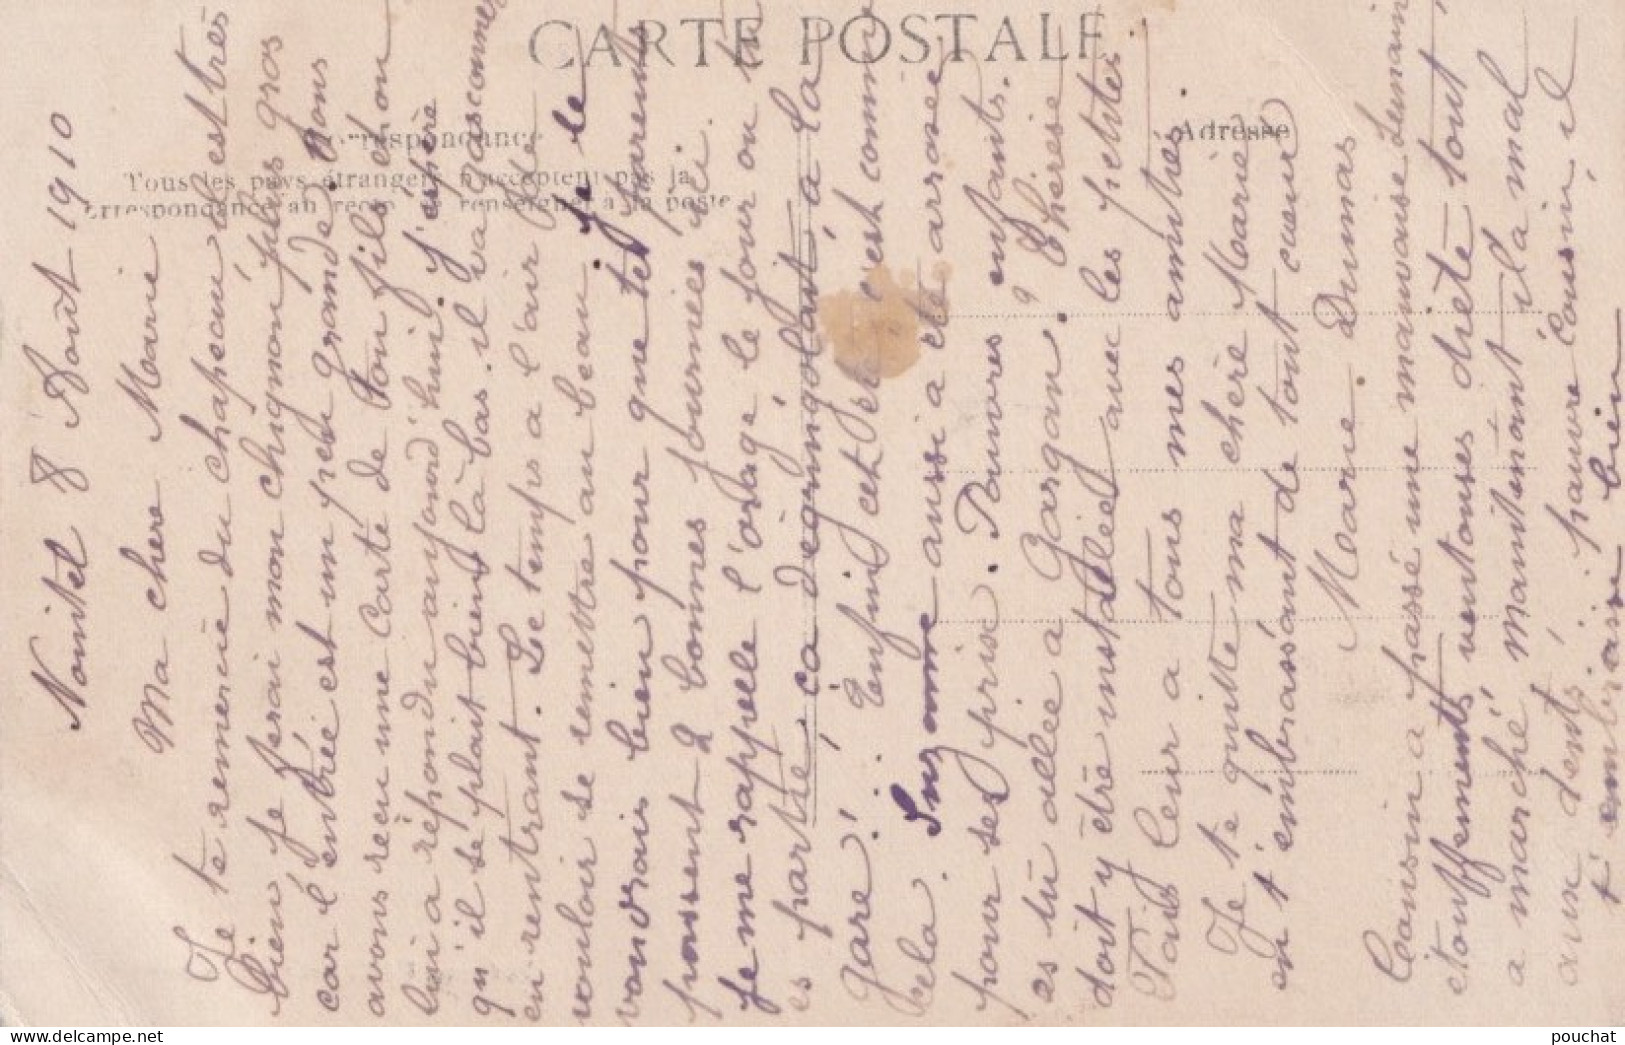 CARTE POSTALE
Correspondance
Adresse
Tous les pays étrangers n'acceptent pas la
correspondance au recto se renseigner à la poste
Nointel 8 Août 1910
Ma chère Marie
Je te remercie du chapeau il est très
bien je ferai mon chignon plus gros
car l'entrée est un peu grande. Nous
avons reçu une carte de ton fils et on
lui a répondu aujourd'hui. J'espère
qu'il se plait bien là-bas. il va
en rentrant. Le temps a l'air de
vouloir se remettre au beau. Je le
voudrais bien pour que tes parents
passent 2 bonnes journées ici.
je me rappelle l'orage le jour ou tu
es partie ça degringolait à la
gare! Enfin cet été c'est comme
cela. Suzanne aussi a été arrosée
pour ses prix. Pauvres enfants.
es tu allée a Gargan. Thérèse
doit y être installée avec les petites
Fais leur a tous mes amitiés.
Je te quitte ma chère Marie
en t'embrassant de tout cœur
Marie Dumas
Cousin a passé une mauvaise semaine
étouffements ventouses diète tout
a marché maintenant il a mal
aux dents! pauvre cousin il
t'embrasse bien
pouchat